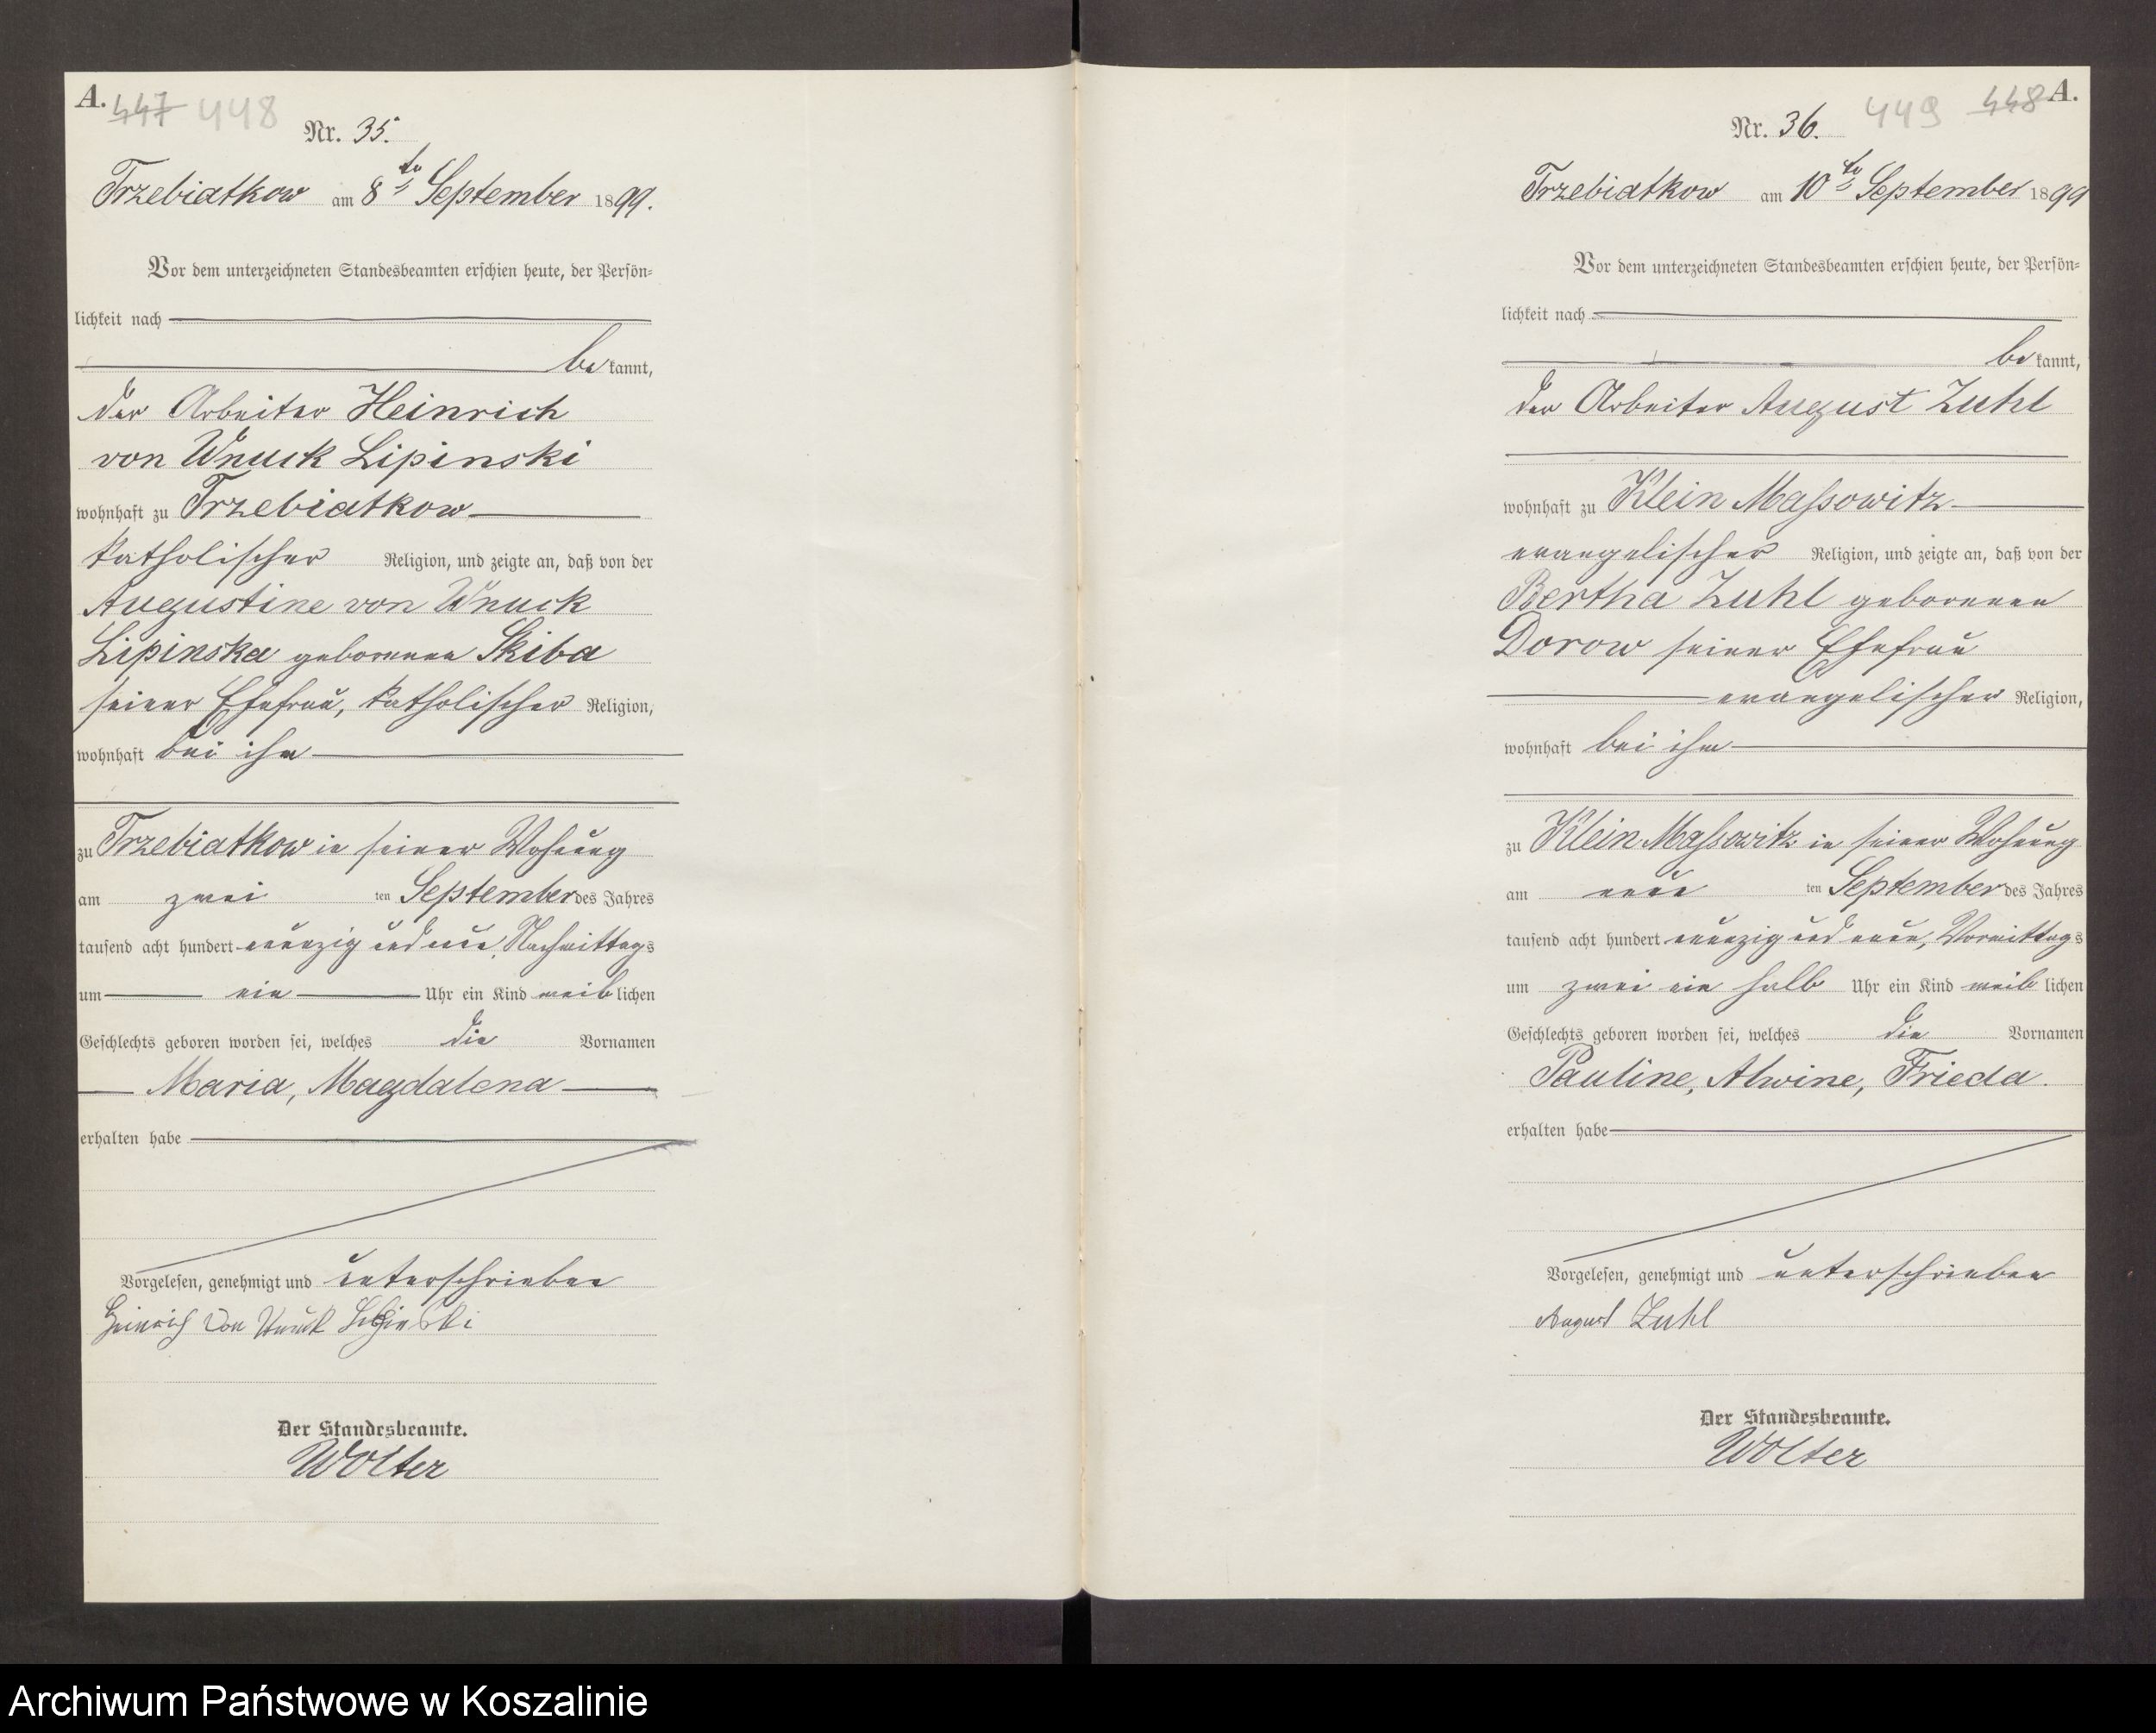 A.
447 448
Nr. 35.
Trzebiatkow am 8ten September 1899.
Vor dem unterzeichneten Standesbeamten erschien heute, der Persön-
lichkeit nach
bekannt,
der Arbeiter Heinrich
von Wnuck Lipinski
wohnhaft zu Trzebiatkow
katholischer Religion, und zeigte an, daß von der
Augustine von Wnuck
Lipinska geborenen Skiba
seiner Ehefrau, katholischer Religion,
wohnhaft bei ihm
zu Trzebiatkow in seiner Wohnung
am zwei ten September des Jahres
tausend acht hundert neunzig und neun, Nachmittags
um ein Uhr ein Kind weiblichen
Geschlechts geboren worden sei, welches die Vornamen
Maria, Magdalena
erhalten habe
Vorgelesen, genehmigt und unterschrieben
Heinrich von Wnuck Lipinski
Der Standesbeamte.
Wolter
449 448 A.
Nr. 36.
Trzebiatkow am 10ten September 1899
Vor dem unterzeichneten Standesbeamten erschien heute, der Persön-
lichkeit nach
bekannt,
der Arbeiter August Zuhl
wohnhaft zu Klein Massowitz
evangelischer Religion, und zeigte an, daß von der
Bertha Zuhl geborenen
Dorow seiner Ehefrau
evangelischer Religion,
wohnhaft bei ihm
zu Klein Massowitz in seiner Wohnung
am neun ten September des Jahres
tausend acht hundert neunzig und neun, Vormittags
um zwei ein halb Uhr ein Kind weiblichen
Geschlechts geboren worden sei, welches die Vornamen
Pauline, Alwine, Frieda.
erhalten habe
Vorgelesen, genehmigt und unterschrieben
August Zuhl
Der Standesbeamte.
Wolter
Archiwum Państwowe w Koszalinie